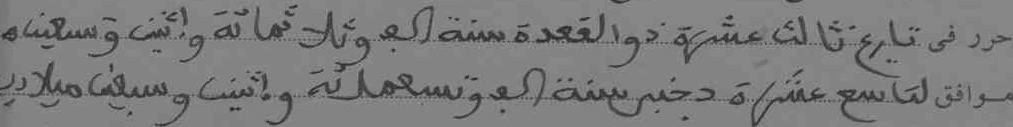 حرر فى تاريخ ثالث عشرة ذوالقعدة سنة الف وثلاثمائة واثنين وتسعين ه
موافق لتاسع عشرة دجنبر سنة الف وتسعمائة واثنين وسبعين ميلادية